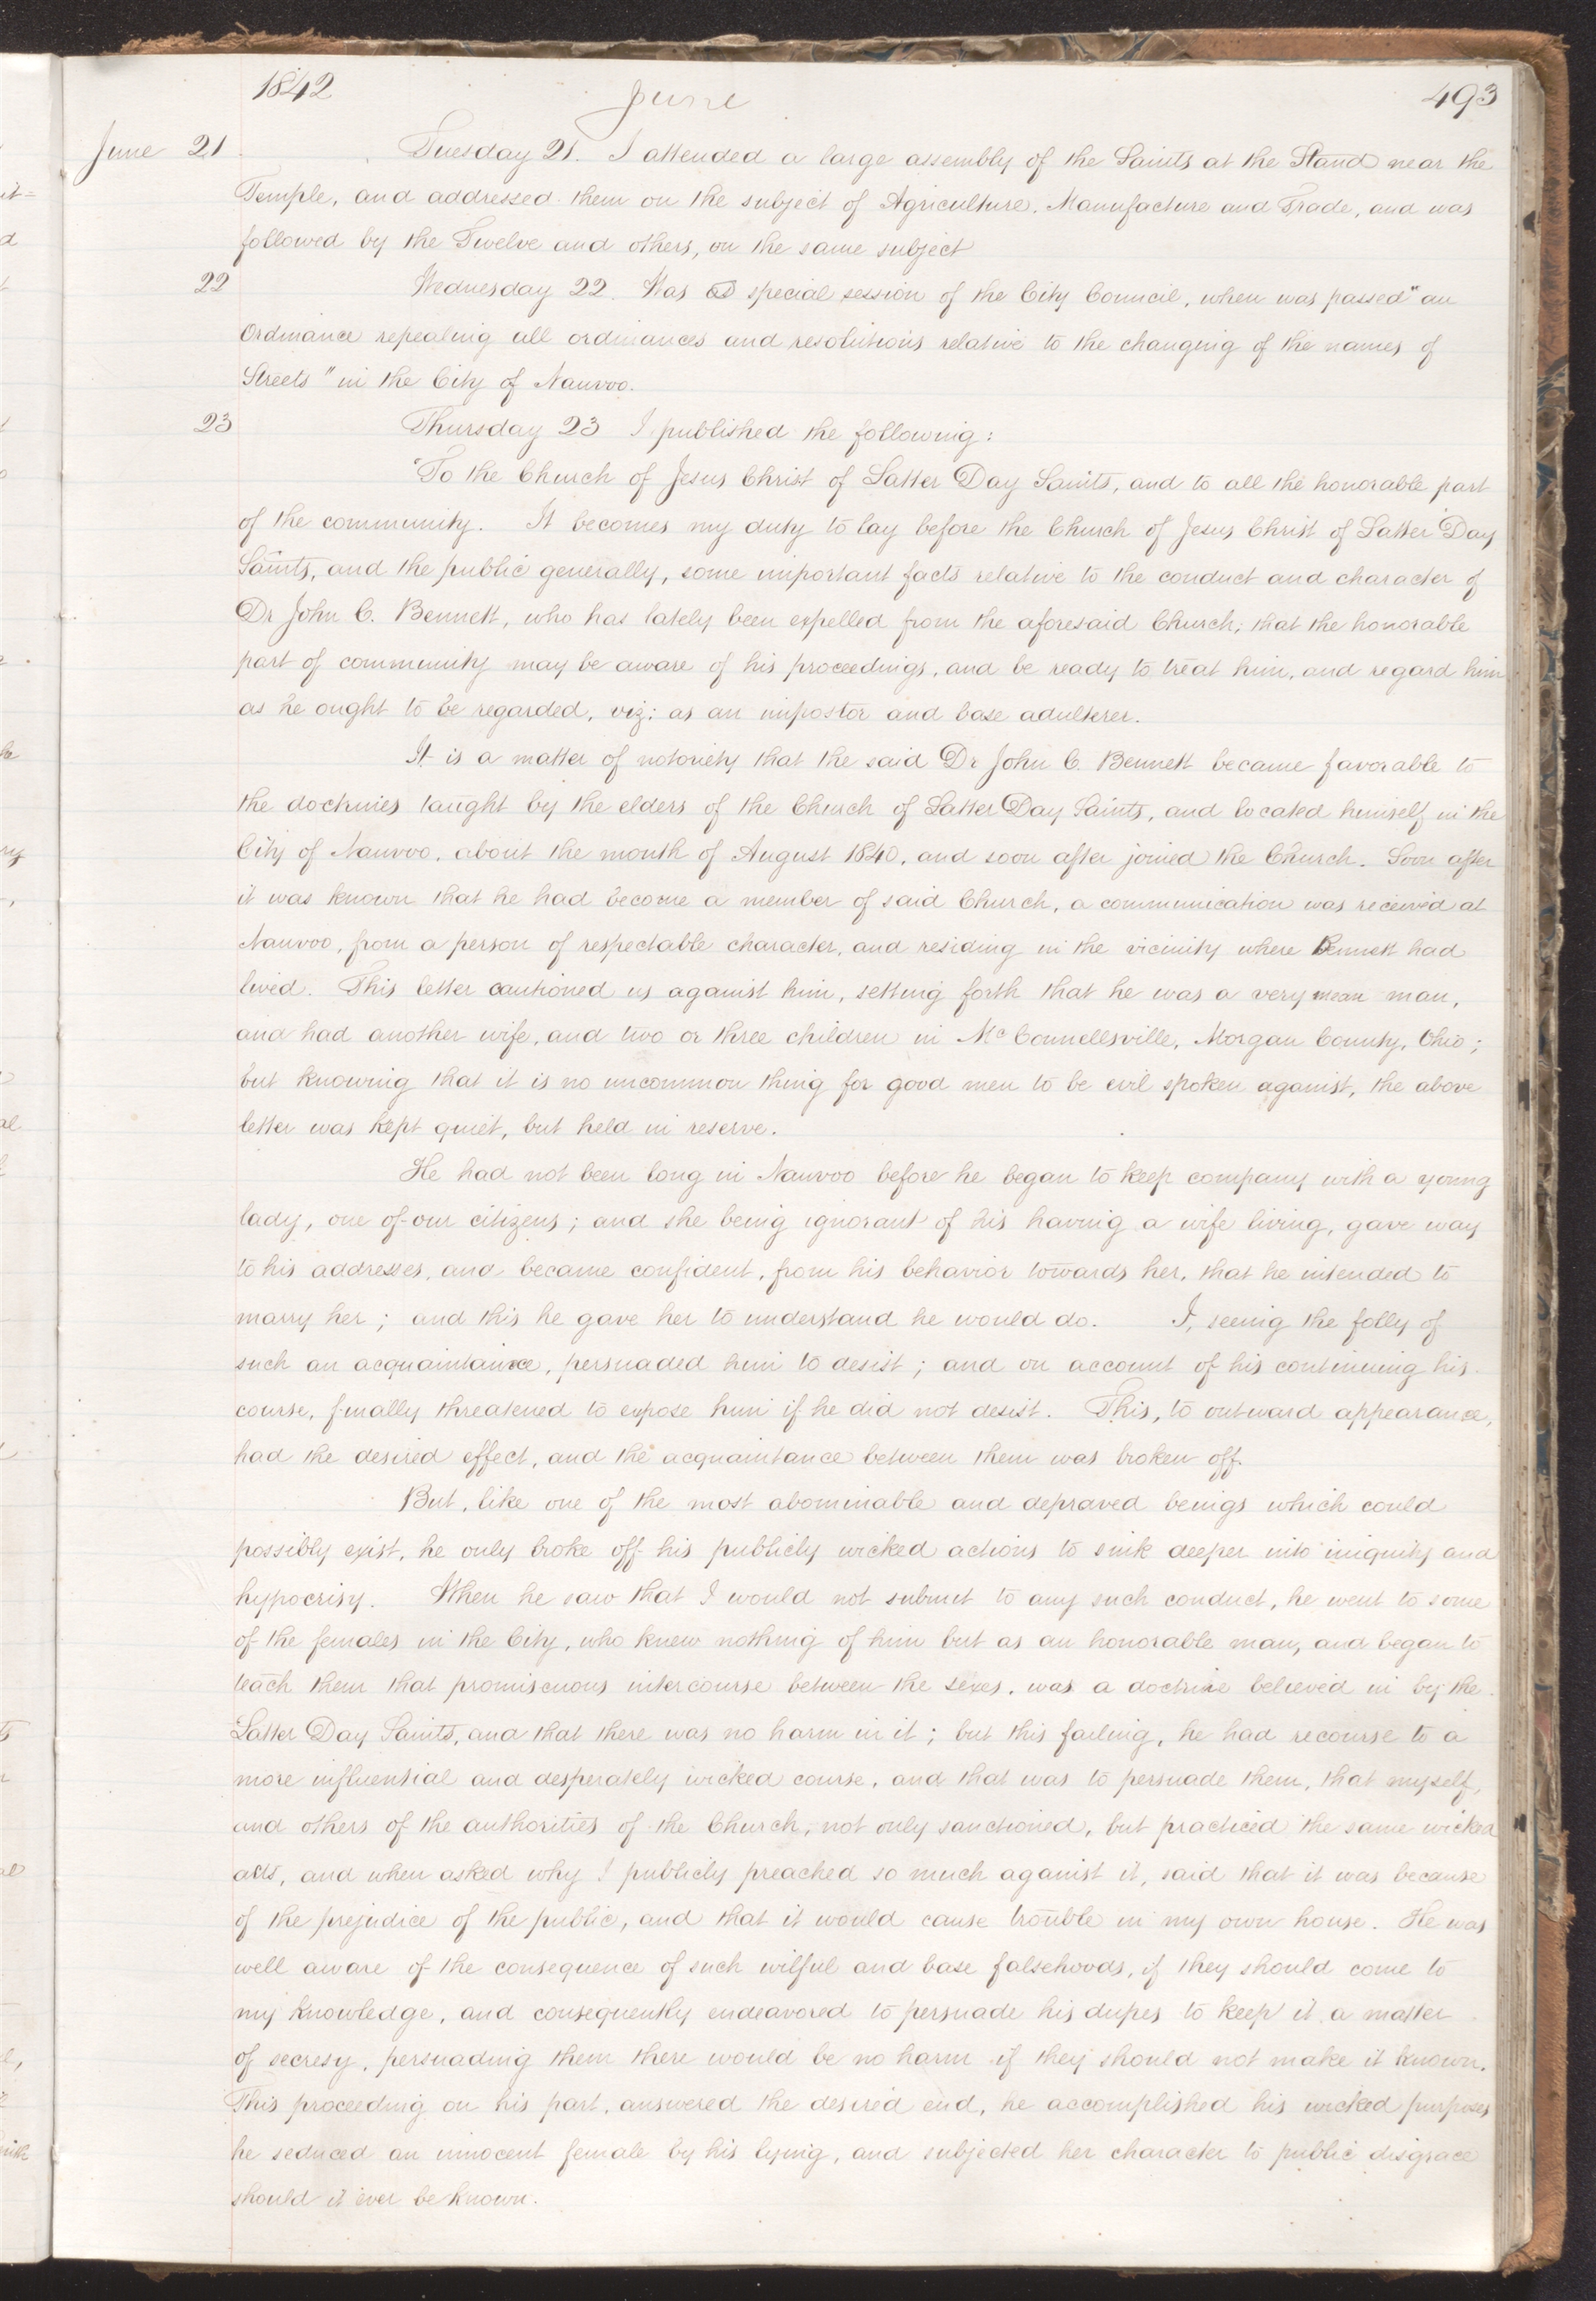 1842 June 493
June 21 Tuesday 21. I attended a large assembly of the Saints at the Stand near the
Temple, and addressed them on the subject of Agriculture, Manufacture and Trade, and was
followed by the Twelve and others, on the same subject
22 Wednesday 22. Was a special session of the City Council, when was passed "an
Ordinance repealing all ordinances and resolutions relative to the changing of the names of
Streets" in the City of Nauvoo.
23 Thursday 23 I published the following:
"To the Church of Jesus Christ of Latter Day Saints, and to all the honorable part
of the community. It becomes my duty to lay before the Church of Jesus Christ of Latter Day
Saints, and the public generally, some important facts relative to the conduct and character of
Dr John C. Bennett, who has lately been expelled from the aforesaid Church; that the honorable
part of community may be aware of his proceedings, and be ready to treat him, and regard him
as he ought to be regarded, viz: as an impostor and base adulterer.
It is a matter of notoriety that the said Dr John C. Bennett became favorable to
the doctrines taught by the elders of the Church of Latter Day Saints, and located himself in the
City of Nauvoo, about the month of August 1840, and soon after joined the Church. Soon after
it was known that he had become a member of said Church, a communication was received at
Nauvoo, from a person of respectable character, and residing in the vicinity where Bennett had
lived. This letter cautioned us against him, setting forth that he was a very mean man,
and had another wife, and two or three children in McConnellsville, Morgan County, Ohio;
but knowing that it is no uncommon thing for good men to be evil spoken against, the above
letter was kept quiet, but held in reserve.
He had not been long in Nauvoo before he began to keep company with a young
lady, one of our citizens; and she being ignorant of his having a wife living, gave way
to his addresses, and became confident, from his behavior towards her, that he intended to
marry her; and this he gave her to understand he would do. I, seeing the folly of
such an acquaintance, persuaded him to desist; and on account of his continuing his
course, finally threatened to expose him if he did not desist. This, to outward appearance,
had the desired effect, and the acquaintance between them was broken off.
But, like one of the most abominable and depraved beings which could
possibly exist, he only broke off his publicly wicked actions to sink deeper into iniquity and
hypocrisy. When he saw that I would not submit to any such conduct, he went to some
of the females in the City, who knew nothing of him but as an honorable man, and began to
teach them that promiscuous intercourse between the sexes, was a doctrine believed in by the
Latter Day Saints, and that there was no harm in it; but this failing, he had recourse to a
more influential and desperately wicked course, and that was to persuade them, that myself,
and others of the authorities of the Church, not only sanctioned, but practiced the same wicked
acts, and when asked why I publicly preached so much against it, said that it was because
of the prejudice of the public, and that it would cause trouble in my own house. He was
well aware of the consequence of such wilful and base falsehoods, if they should come to
my knowledge, and consequently endeavored to persuade his dupes to keep it a matter
of secresy, persuading them there would be no harm if they should not make it known.
This proceeding on his part, answered the desired end, he accomplished his wicked purposes
he seduced an innocent female by his lying, and subjected her character to public disgrace
should it ever be known.